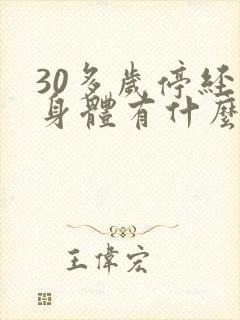 30多歲停經
身體有什麼
王偉宏